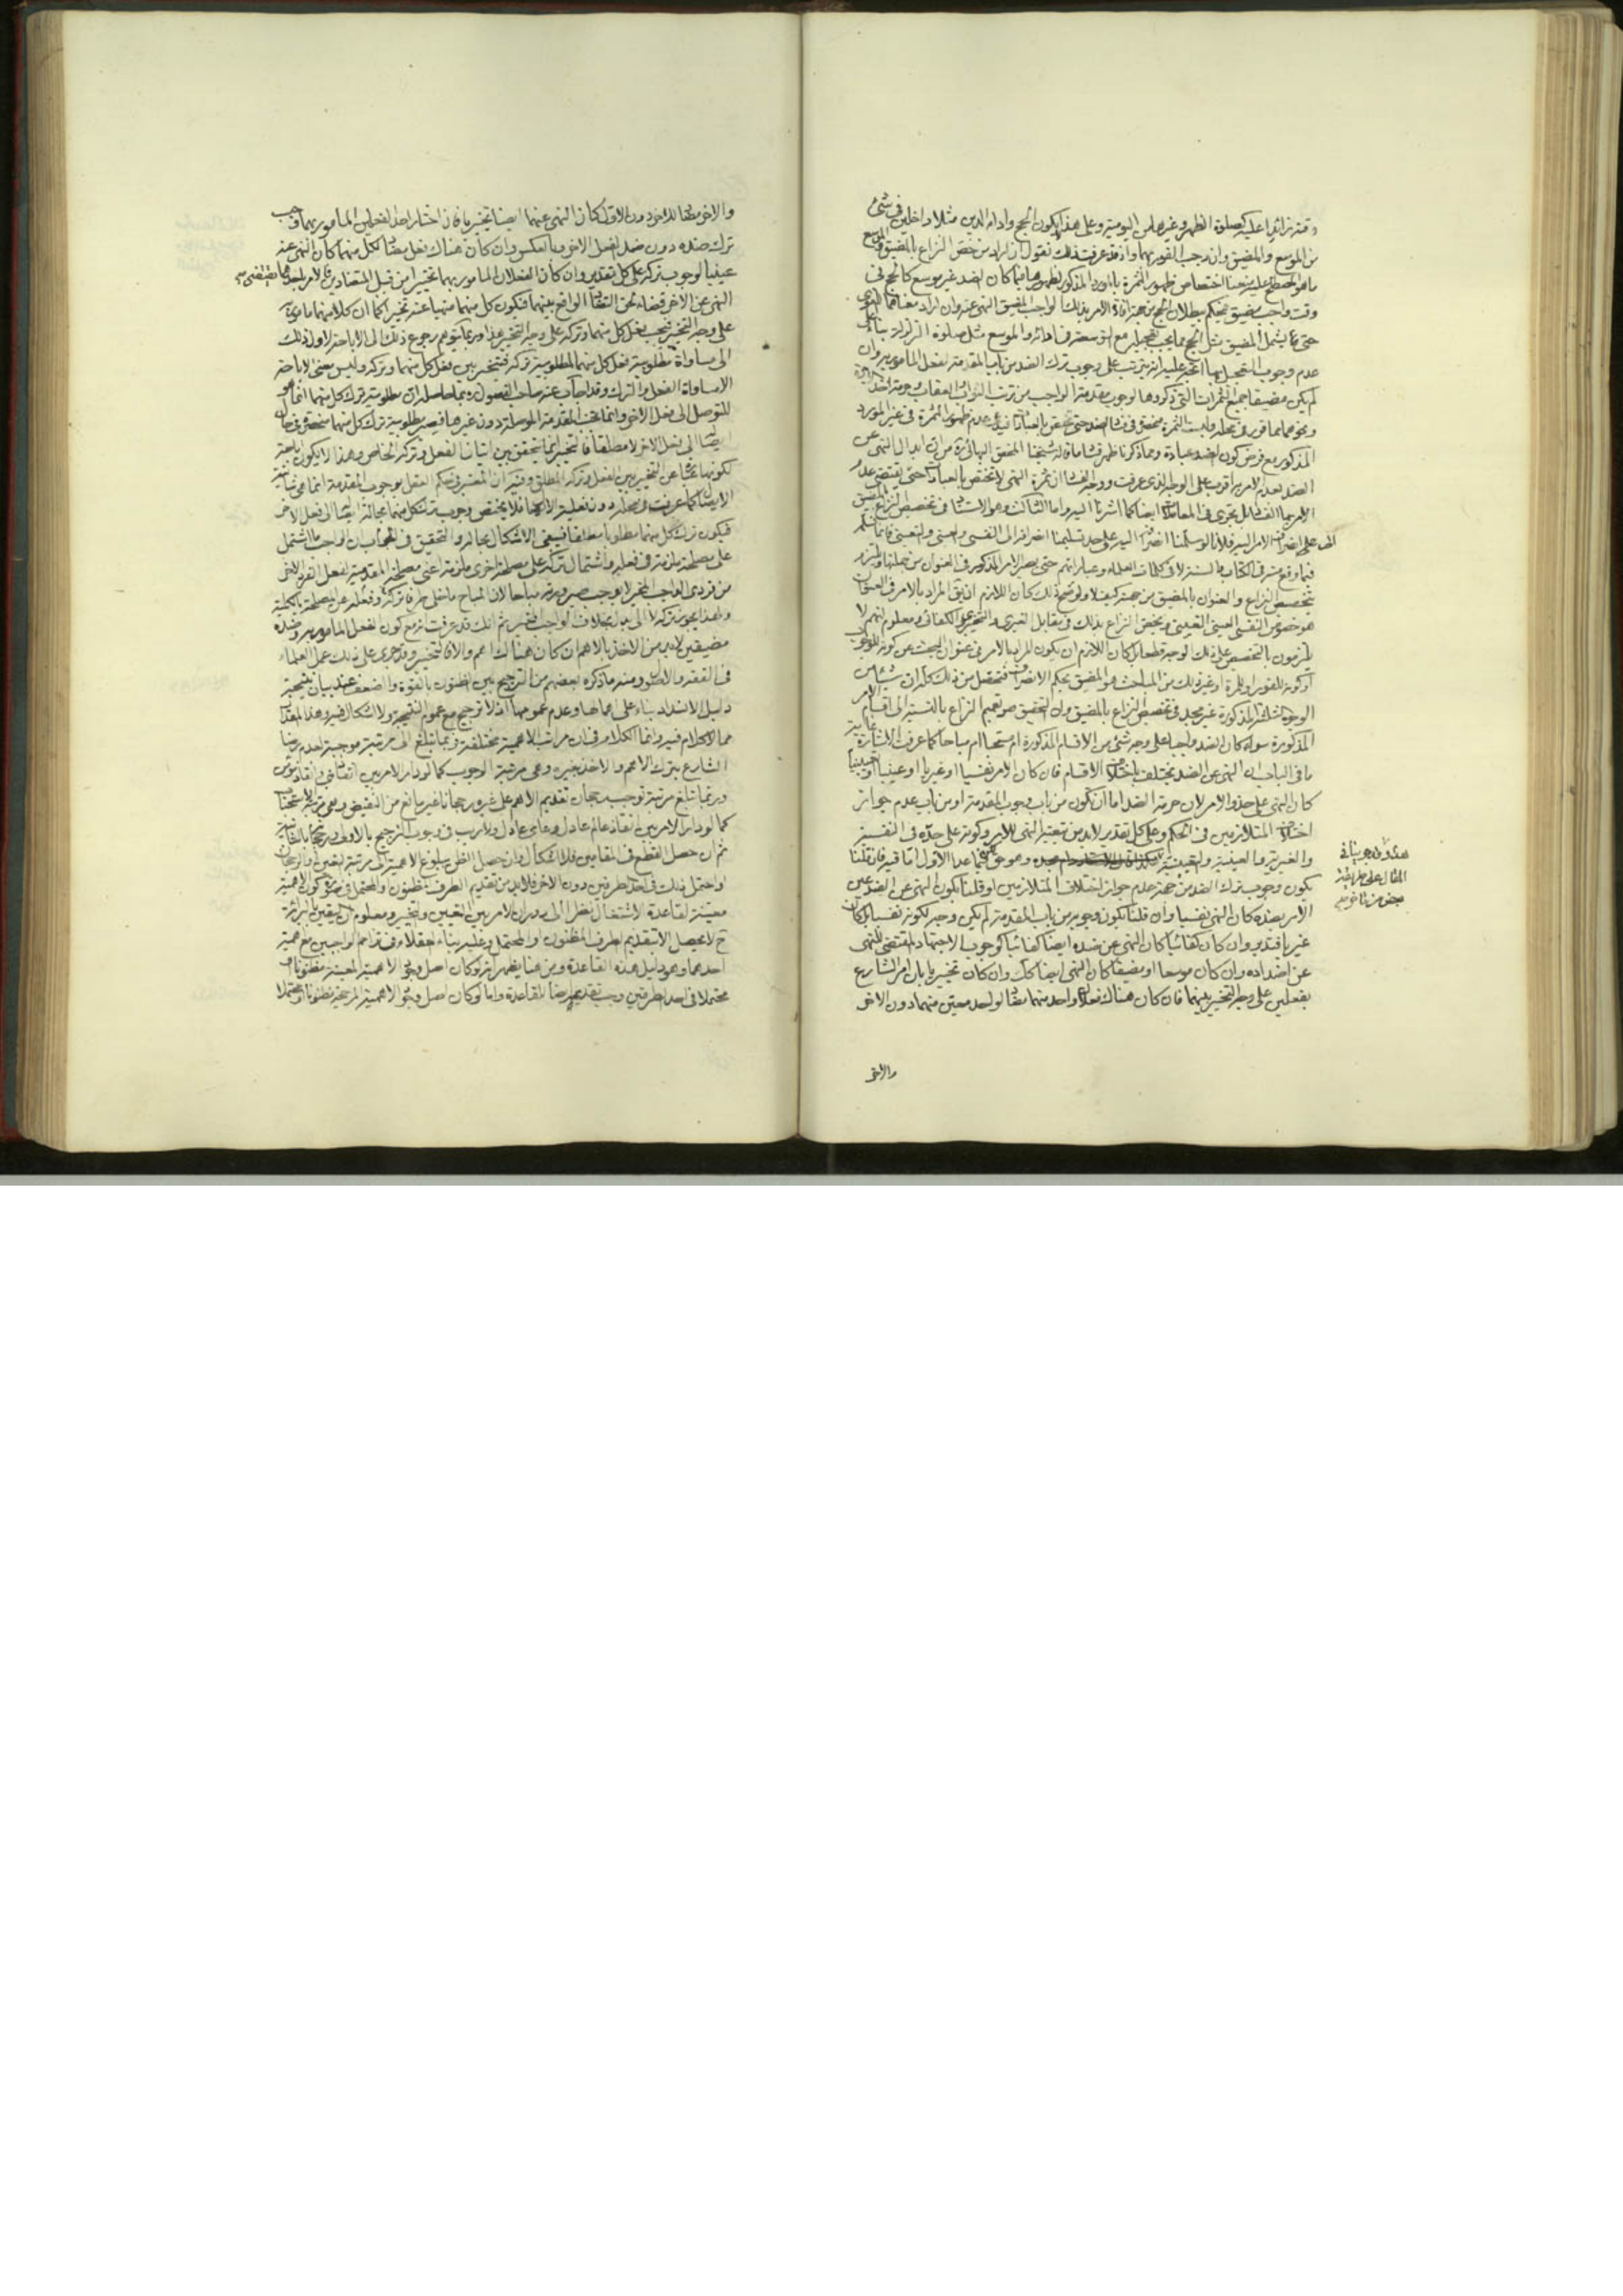 وقته زائدا عليه كصلوة الظهر وغيرها من اليومية وعلى هذا يكون الحج واداء الدين مثلا داخلين في شيء
من الموسع والمضيق وان وجب الفور بهما واذ قد عرفت ذلك نقول ان اراد من خص النزاع بالمضيق
ما هو المصطلح عليه اختصاص ظهور الثمرة المذكور كان الضد غير موسع كالحج في
وقت واجب مضيق يحكم ببطلان الحج من جهة الامر بذلك الواجب المضيق النهي عنه وان اراد معناهما
حتى يشمل المضيق مثل الحج مما يجب تعجيله مع سعة والموسع مثل صلوة الزلزلة بناء على
عدم وجوب التعجيل بها يترتب على وجوب ترك الضد من باب المقدمة لفعل المأمور به وان
لم يكن مضيقا جميع الثمرات التي ذكروها لوجوب مقدمة الواجب من ترتب الثواب والعقاب وحرمة اخذ
ونحوهما مما قرر في محله وليست الثمرة منحصرة في الضد حتى يختص بالعبادات عدم ظهور الثمرة في غير المورد
المذكور مع فرض كون الضد عبادة ومما ذكرنا ظهر ما قاله شيخنا المحقق البهائي ره من ابدال النهي عن
الضد بعدم الامر به اقرب على الوجه الذي عرفت ان ثمرة النهي لا تختص بالعبادات حتى يقتضي عدم
الامر بها بل تجري في المعاملات ايضا كما اشرنا اليه واما الثالث وهو الاستناد في تخصيص النزاع بالمضيق
على انصراف الامر اليه فلانا لو سلمنا انصرافه اليه على حد تسليمنا انصرافه الى النفسي والعيني والتعييني فانما نسلم
فيما وقع منه في الكتاب والسنة لا في كلمات العلماء وعباراتهم حتى يصير الامر المذكور في العنوان من جملتها
تخصيص النزاع والعنوان بالمضيق من جهته كيف لا ولو صح ذلك كان اللازم ان يق المراد بالامر في العنوان
هو خصوص النفسي العيني التعييني ويختص النزاع بذلك في مقابل الغيري والتخييري والكفائي ومعلوم انهم لا
يلتزمون بالتخصيص على ذلك الوجه قطعا بل كان اللازم ان يكون المراد بالامر في عنوان البحث عن كونه للوجوب
او كونه للفور او للمرة او غير ذلك من المباحث هو المضيق بحكم الانصراف فتحصل من ذلك كله ان شيئا من
الوجوه الثلثة المذكورة غير مجد في تخصيص النزاع بالمضيق وان التحقيق هو تعميم النزاع بالنسبة الى اقسام الامر
المذكورة سواء كان الضد واجبا على وجه شيء من الاقسام المذكورة ام مستحبا ام مباحا كما عرفت الاشارة
ما في الباب ان النهي عن الضد يختلف باختلاف الاقسام فان كان الامر نفسيا او غيريا او عينيا
كان النهي على حذو الامر لان حرمة الضد اما ان تكون من باب وجوب المقدمة او من باب عدم جواز
اختلاف المتلازمين في الحكم وعلى كل تقدير لابد من تبعية النهي للامر وكونه على حده في النفسية
والغيرية والعينية والتعيينية وهو حق فيما عدا الاول اما فيه فان قلنا
بكون وجوب ترك الضد من جهة عدم جواز اختلاف المتلازمين او قلنا بكون النهي عن الضد عين
الامر بضده كان النهي نفسيا وان قلنا بكون وجوبه من باب المقدمة لم يكن وجه لكونه نفسيا بل كان
غيريا وان كان كفائيا كان النهي عن ضده ايضا كفائيا كوجوب الاجتهاد المقتضي للنهي
عن اضداده وان كان موسعا او مضيقا كان النهي ايضا كك وان كان تخييريا بان امر الشارع
بفعلين على وجه التخيير بينهما فان كان هناك فعلان واحد منهما مضاد لواحد معين منهما دون الاخر
والاخر
هذا
المثال على طريقة
والاخر مضاد للاخر دون الاول كان النهي عنهما ايضا تخييريا فان اختار احد الفعلين المأمور بهما وجب
ترك ضده دون ضد الفعل الاخر وبالعكس وان كان هناك فعل مضاد لكل منهما كان النهي عنه
عينيا لوجوب تركه على كل تقدير وان كان الفعلان المأمور بهما تخييرا من قبيل المتضادين فالامر باحدهما يقتضي
النهي عن الاخر قضاء لحق التضاد الواقع بينهما فيكون كل منهما منهيا عنه تخييرا كما ان كلا منهما مأمور به
على وجه التخيير فيجب فعل كل منهما وتركه على وجه التخيير هذا وربما يتوهم رجوع ذلك الى الاباحة لاول ذلك
الى مساواة مطلوبية فعل كل منهما لمطلوبية تركه فتخير بين فعل كل منهما وتركه وليس معنى الاباحة
الا مساواة الفعل والترك وقد اجاب عنه صاحب الفصول ره بما حاصله ان مطلوبية ترك كل منهما انما هو
للتوصل الى فعل الاخر وانما تجب المقدمة الموصلة دون غيرها فيصير مطلوبية ترك كل منهما منحصرة في حال
ايصالها الى فعل الاخر لا مطلقا فالتخيير انما يتحقق بين اتيان الفعل وتركه الخاص وهذا لا يكون اباحة
لكونها تخييرا عن التخيير بين الفعل وتركه المطلق وفيه ان المعتبر في حكم العقل بوجوب المقدمة انما هي شأنية
الايصال كما عرفت في محله دون فعلية الايصال فلا يختص وجوب ترك كل منهما بحالة ايصاله الى فعل الاخر
فيكون ترك كل منهما مطلوبا مطلقا فيبقى الاشكال بحاله والتحقيق في الجواب ان الواجب ما اشتمل
على مصلحة ملزمة في فعله واشتمال تركه على مصلحة اخرى ملزمة اعني مصلحة المقدمية لفعل الفرد الاخر
من فردي الواجب المخير لا يوجب صيرورته مباحا لان المباح ما خلى طرفا تركه وفعله عن المصلحة بالكلية
ولهذا يجوز تركه لا الى بدل بخلاف الواجب المخير ثم انك قد عرفت انه مع كون الفعل المأمور به وضده
مضيقين لابد من الاخذ بالاهم ان كان هناك اهم والا فالتخيير وقد جرى على ذلك عمل العلماء
في الفقه والاصول ومنه ما ذكره بعضهم من الترجيح بين الظنون بالقوة والضعف عند بيان نتيجة
دليل الانسداد بناء على اهمالها وعدم عمومها اذ لا ترجيح مع عموم النتيجة ولا اشكال فيه وهذا المقدار
مما لا كلام فيه وانما الكلام في ان مراتب الاهمية مختلفة فربما تبلغ الى مرتبة موجبة لعدم رضا
الشارع بترك الاهم والاخذ بغيره وهي مرتبة الوجوب كما لو دار الامر بين انقاذ نبي وانقاذ مؤمن
وربما تبلغ مرتبة توجب رجحان تقديم الاهم على غيره رجحانا غير مانع من النقيض وهي مرتبة الاستحباب
كما لو دار الامر بين انقاذ عالم عادل وعامي عادل ولا ريب في وجوب الترجيح بالاولى ورجحانه بالثانية
ثم ان حصل القطع في المقامين فلا اشكال وان حصل الظن ببلوغ الاهمية الى مرتبة التعين والرجحان
او احتمل ذلك في احد الطرفين دون الاخر فلابد من تقديم الطرف المظنون والمحتمل في صورة كون الاهمية
معينة لقاعدة الاشتغال نظرا الى دوران الامر بين التعيين والتخيير ومعلوم ان اليقين بالبرائة
ح لا يحصل الا بتقديم الطرف المظنون او المحتمل وعليه بناء العقلاء في تزاحم الواجبين مع اهمية
احدهما وهو دليل هذه القاعدة ومن هنا يظهر انه لو كان اصل وجود الاهمية المعينة مظنونا او
محتملا في احد الطرفين وجب تقديمه ايضا للقاعدة واما لو كان اصل وجود الاهمية المرجحة مظنونا او محتملا